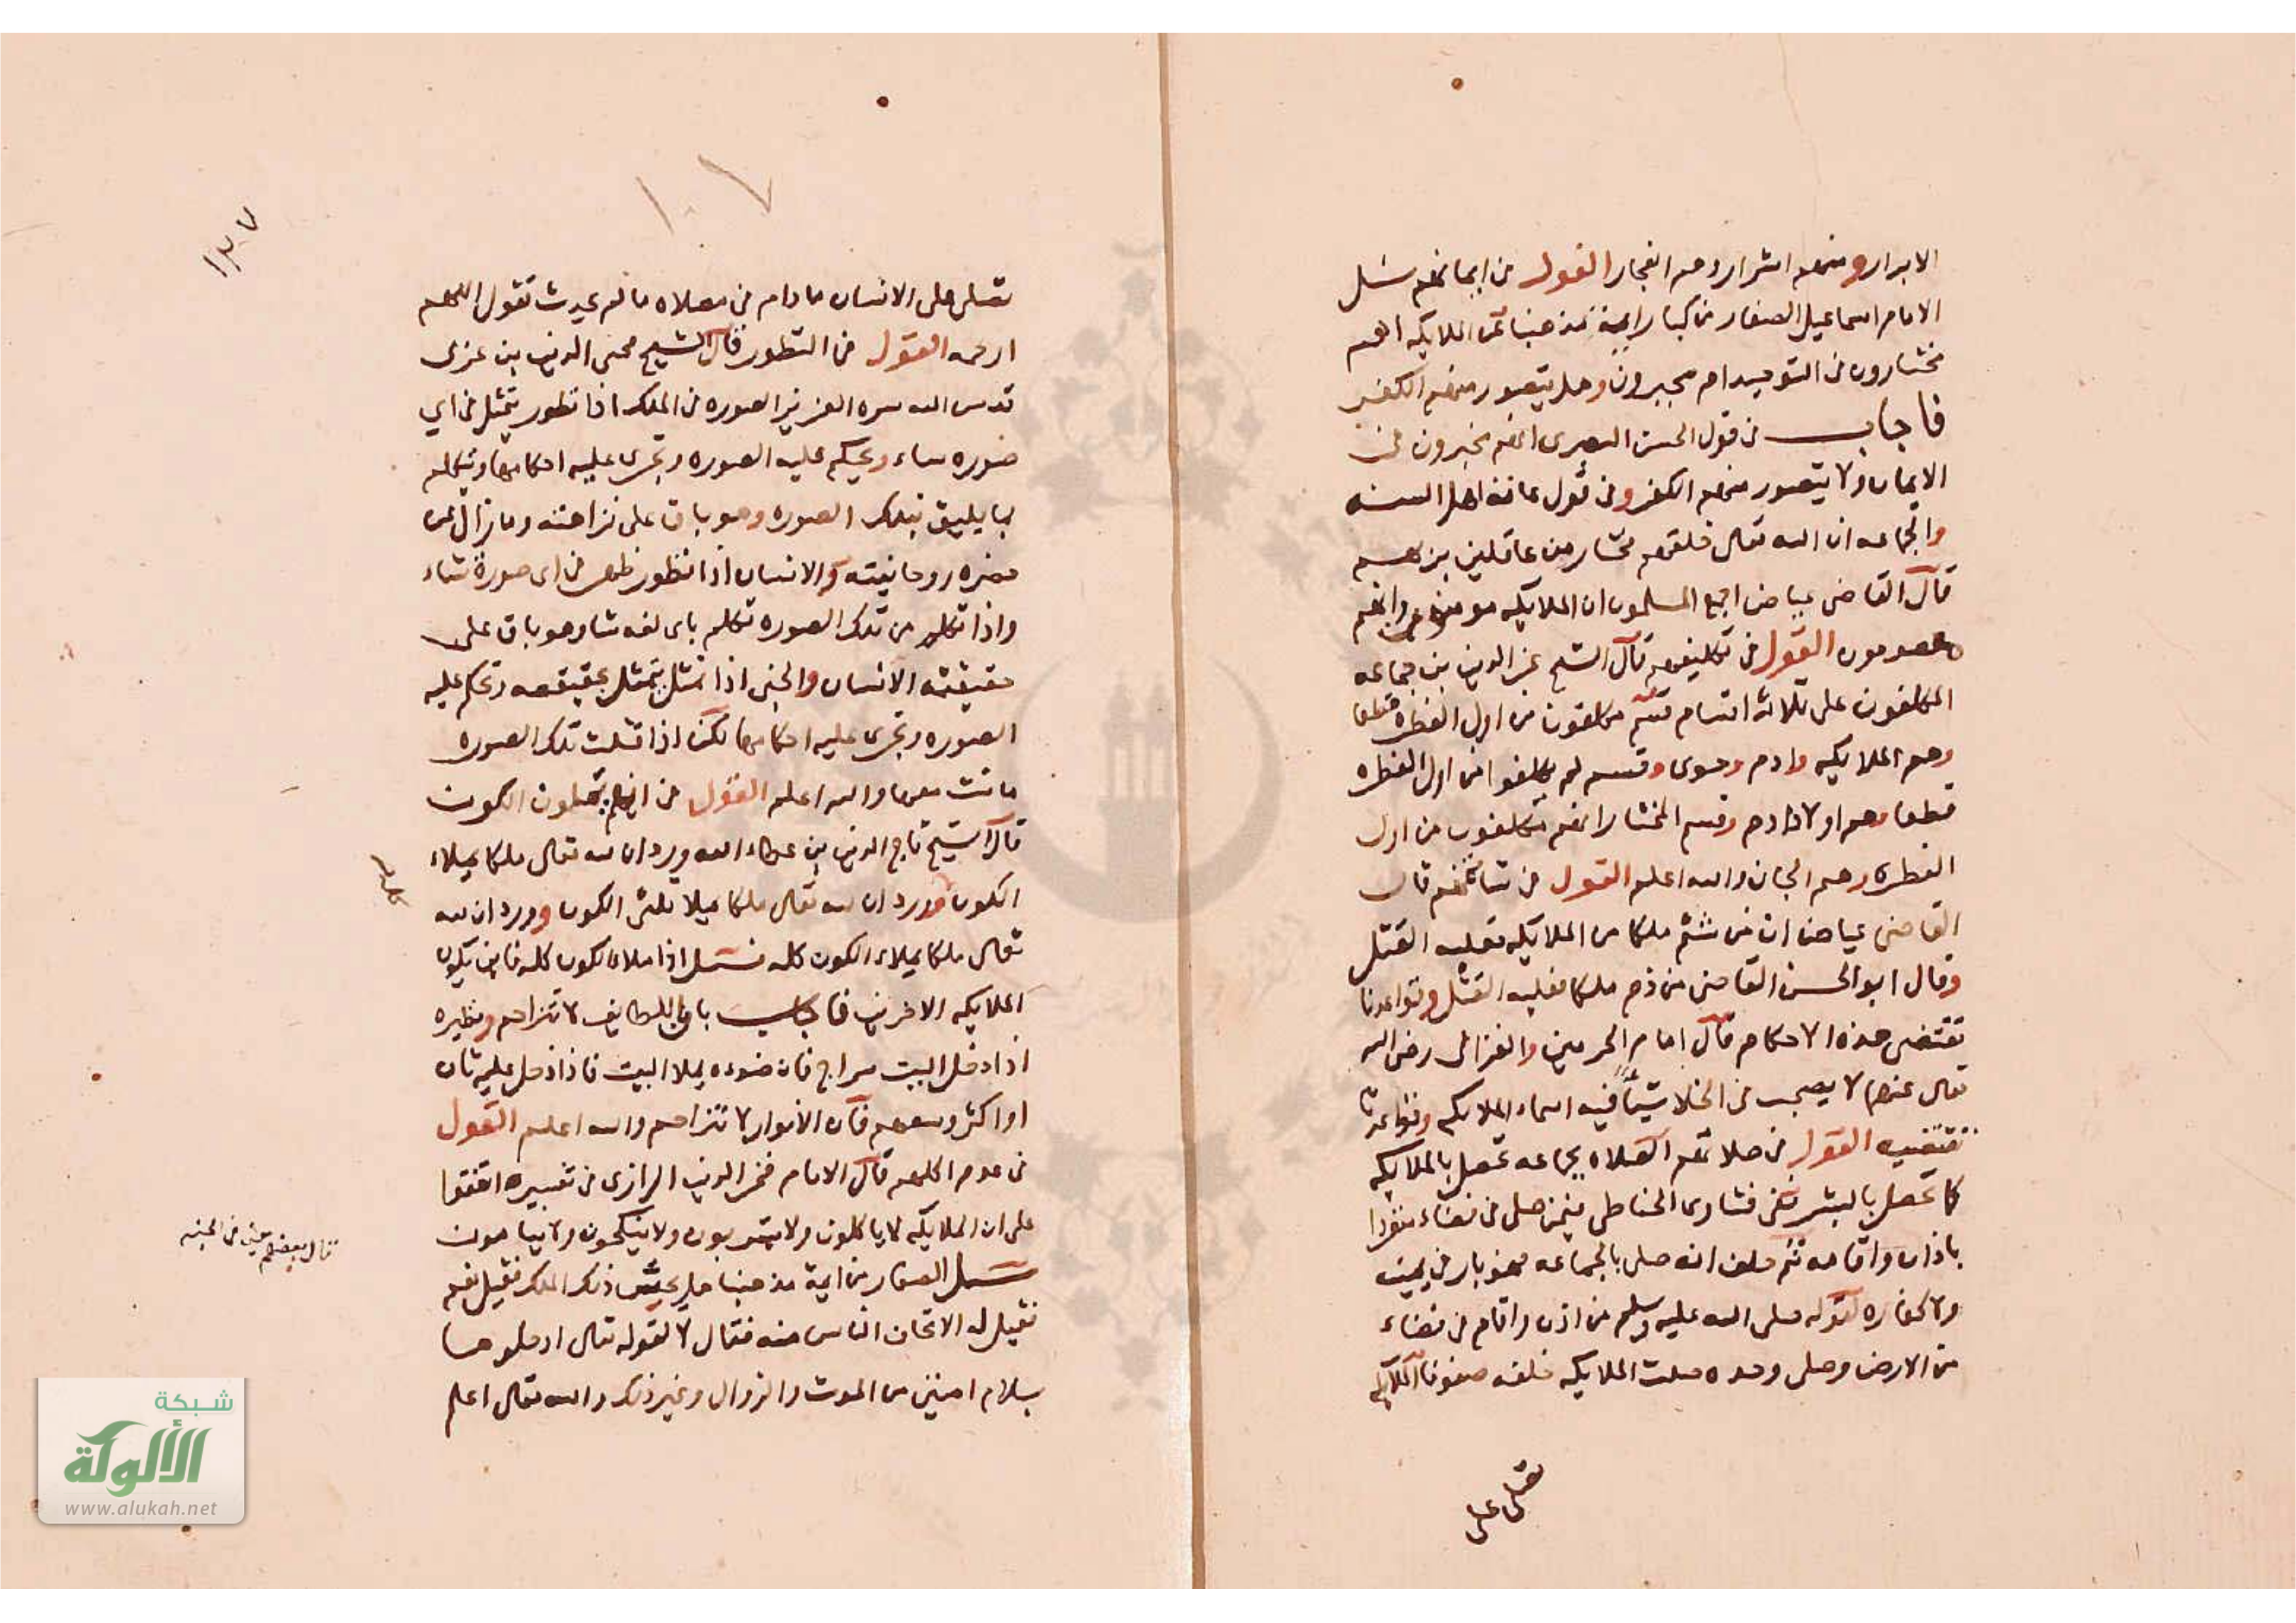 الابرار ومنهم اشرار وهم الفجار القول من ايمانهم سئل
الامام اسماعيل الصفار من كبار ايمة مذهبنا عن الملايكه اهم
مختارون في التوحيد ام مجبرون وهل يتصور منهم الكفر
فاجاب في قول الحسن البصرى انهم مجبرون في
الايمان ولا يتصور منهم الكفر وفي قول عامة اهل السنه
والجماعه ان الله تعالى خلقهم مختارين عاقلين
قال القاضى عياض اجمع المسلمون ان الملايكه مومنون وانهم
معصومون القول في تكليفهم قال الشيخ عز الدين بن جماعه
المكلفون على ثلاثه اقسام قسم مكلفون من اول الفطره قطعا
وهم الملايكه وادم وحوى وقسم لم يكلفوا من اول الفطره
قطعا وهم اولاد ادم وقسم المختار انهم مكلفون من اول
الفطره وهم الجان والله اعلم القول في شاتمهم قال
القاضى عياض ان من شتم ملكا من الملايكه فعليه القتل
وقال ابو الحسن القاضى من ذم ملكا فعليه القتل وقواعدنا
تقتضى هذه الاحكام قال امام الحرمين والغزالى رضى الله
تعالى عنهما لا يصحب في الخلا شيئا فيه اسماء الملايكه وقواعدنا
تقتضيه القول في صلاتهم الصلاه بجماعه تحصل بالملايكه
كما تحصل بالبشر ففى فتاوى الحناطى فيمن صلى في فضاء منفردا
باذان واقامه ثم حلف انه صلى بالجماعه فهو بار في يمينه
ولا كفاره لقوله صلى الله عليه وسلم من اذن واقام في فضاء
من الارض وصلى وحده صلت الملايكه خلفه صفوفا الملايكه
تصلى على
١٠٧
١٣٧
تصلى على الانسان مادام في مصلاه مالم يحدث تقول اللهم
ارحمه القول في التطور قال الشيخ محيى الدين بن عربى
قدس الله سره العزيز الصوره في الملك اذا تطور يتمثل في اي
صوره شاء ويحكم عليه الصوره وتجرى عليه احكامها وتكلم
بما يليق بتلك الصوره وهو باق على نزاهته وما زال عن
حضره روحانيته والانسان اذا تطور ظهر في اى صورة شاء
واذا تكلم من تلك الصوره تكلم باى لغه شا وهو باق على
حقيقته الانسان والجنى اذا تمثل يتمثل بحقيقته وتحكم عليه
الصوره وتجرى عليه احكامها لكن اذا قتلت تلك الصوره
مات معها والله اعلم القول في انهم يملون الكون
قال الشيخ تاج الدين بن عطاء الله ورد ان لله تعالى ملكا يملاء
الكون وورد ان لله تعالى ملكا يملا ثلثى الكون وورد ان لله
تعالى ملكا يملاء الكون كله فسئل اذا ملا الكون كله فاين يكون
الملايكه الاخرين فاجاب بان اللطايف لا تتزاحم ونظيره
اذا ادخل البيت سراج فان ضوءه يملا البيت فاذا دخل عليه ثان
او اكثر وسعهم فان الانوار لا تتزاحم والله اعلم القول
في عدم اكلهم قال الامام فخر الدين الرازى في تفسيره اتفقوا
على ان الملايكه لا ياكلون ولا يشربون ولا ينكحون ولا ينامون
سئل الصفار من ايمة مذهبنا هل ذلك الملك فقيل نعم
فقيل له الناس منه فقال لا لقوله تعالى ادخلوها
بسلام امنين من الموت والزوال وغير ذلك والله تعالى اعلم
قال بعضهم في الجنه
شبكة
الألوكة
www.alukah.net